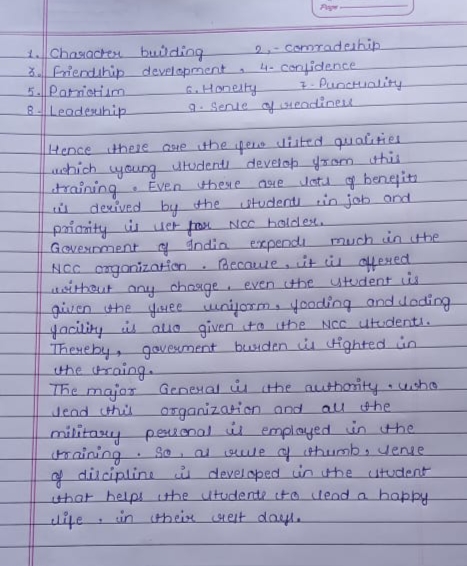 Page
1. Character building 2.- comradeship
3. Friendship development. 4- confidence
5. Patriotism 6. Honesty 7- Punctuality
8- Leadership 9- sense of readiness
Hence these are the few listed qualities
which young students develop from this
training. Even there are lots of benefits
is derived by the students in job and
priority is set for NCC holder.
Government of India expends much in the
NCC organization. Because, it is offered
without any charge, even the student is
given the free uniform, fooding and loding
facility is also given to the NCC students.
Thereby, goverment burden is tighted in
the traing.
The major General is the authority, who
lead this organization and all the
military personal is employed in the
training. So, as rule of thumb, sense
of discipline is developed in the student
that helps the students to lead a happy
life, in their rest days.